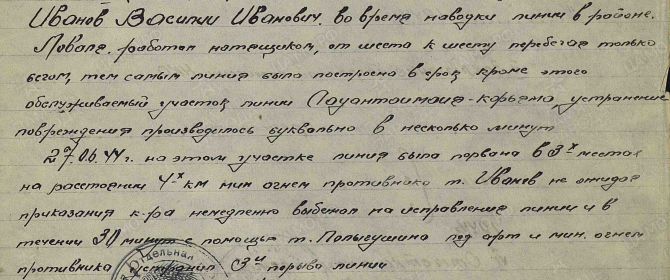 Иванов Василий Иванович. во время наводки линии в районе.
Ловола. работал натащиком, от шеста к шесту перебегая только
бегом, тем самым линия была построена в срок кроме этого
обслуживаемый участок линии устранение
повреждения производилось буквально в несколько минут
27.06.44 г. на этом участке линия была порвана в 3х местах
на расстоянии 4-х км мин огнем противника т. Иванов не ожидая
приказания к-ра немедленно выбежал на исправление линии и в
течении 30 минут с помощью т. Полыгушина под арт и мин. огнем
противника устранил 3и порыва линии